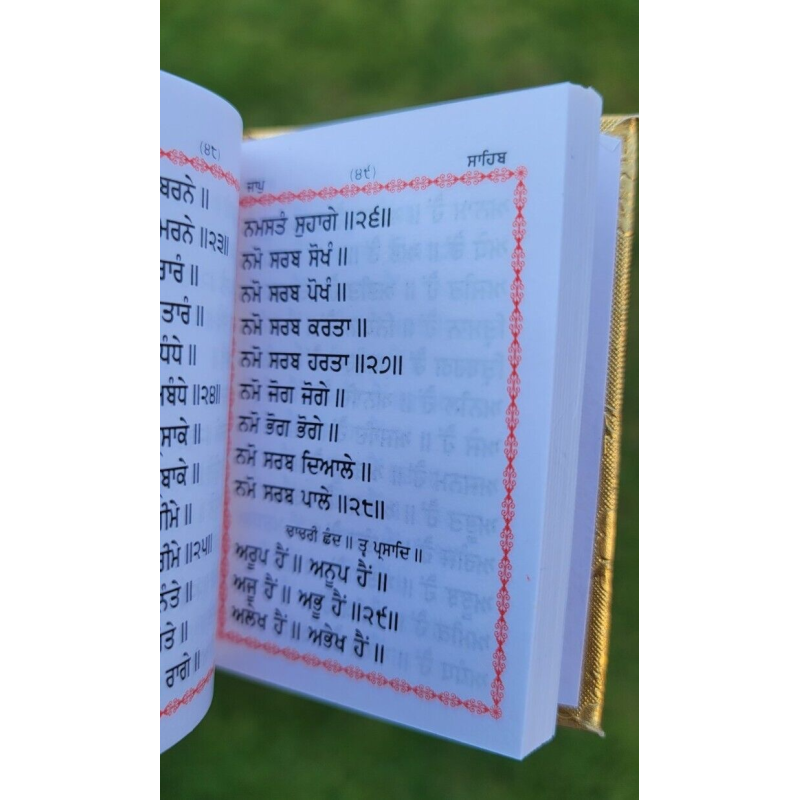 (੪੮)
ਬਰਨੇ ॥
ਮਰਨੇ ॥੨੩॥
ਤਾਰੰ ॥
ਧੰਧੇ ॥
ਬੰਧੇ ॥੨੪॥
ਸਾਕੇ ॥
ਬਾਕੇ ॥
ਰੀਮੇ ॥੨੫॥
ਰਾਗੇ ॥
ਜਾਪੁ (੪੯) ਸਾਹਿਬ
ਨਮਸਤੰ ਸੁਹਾਗੇ ॥੨੬॥
ਨਮੋ ਸਰਬ ਸੋਖੰ ॥
ਨਮੋ ਸਰਬ ਪੋਖੰ ॥
ਨਮੋ ਸਰਬ ਕਰਤਾ ॥
ਨਮੋ ਸਰਬ ਹਰਤਾ ॥੨੭॥
ਨਮੋ ਜੋਗ ਜੋਗੇ ॥
ਨਮੋ ਭੋਗ ਭੋਗੇ ॥
ਨਮੋ ਸਰਬ ਦਿਆਲੇ ॥
ਨਮੋ ਸਰਬ ਪਾਲੇ ॥੨੮॥
ਚਾਚਰੀ ਛੰਦ ॥ ਤ੍ਵ ਪ੍ਰਸਾਦਿ ॥
ਅਰੂਪ ਹੈਂ ॥ ਅਨੂਪ ਹੈਂ ॥
ਅਜੂ ਹੈਂ ॥ ਅਭੂ ਹੈਂ ॥੨੯॥
ਅਲੇਖ ਹੈਂ ॥ ਅਭੇਖ ਹੈਂ ॥